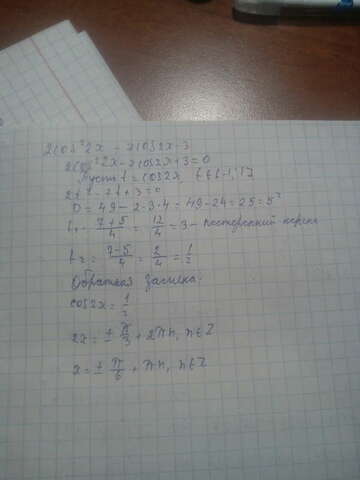 2cos²2x - 7cos2x-3
2cos²2x-7cos2x+3=0
Пусть t=cos2x, t∈[-1;1]
2t²-7t+3=0
D = 49 - 2·3·4 = 49-24=25=5²
t₁ = 7+5/4 = 12/4 = 3 - посторонний корень
t₂ = 7-5/4 = 2/4 = 1/2
Обратная замена:
cos2x = 1/2
2x = ± π/3 + 2πn, n∈Z
x = ± π/6 + πn, n∈Z